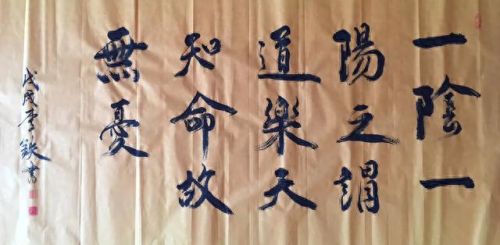 一陰一
陽之謂
道樂天
知命故
無憂
戊戌李鐵書